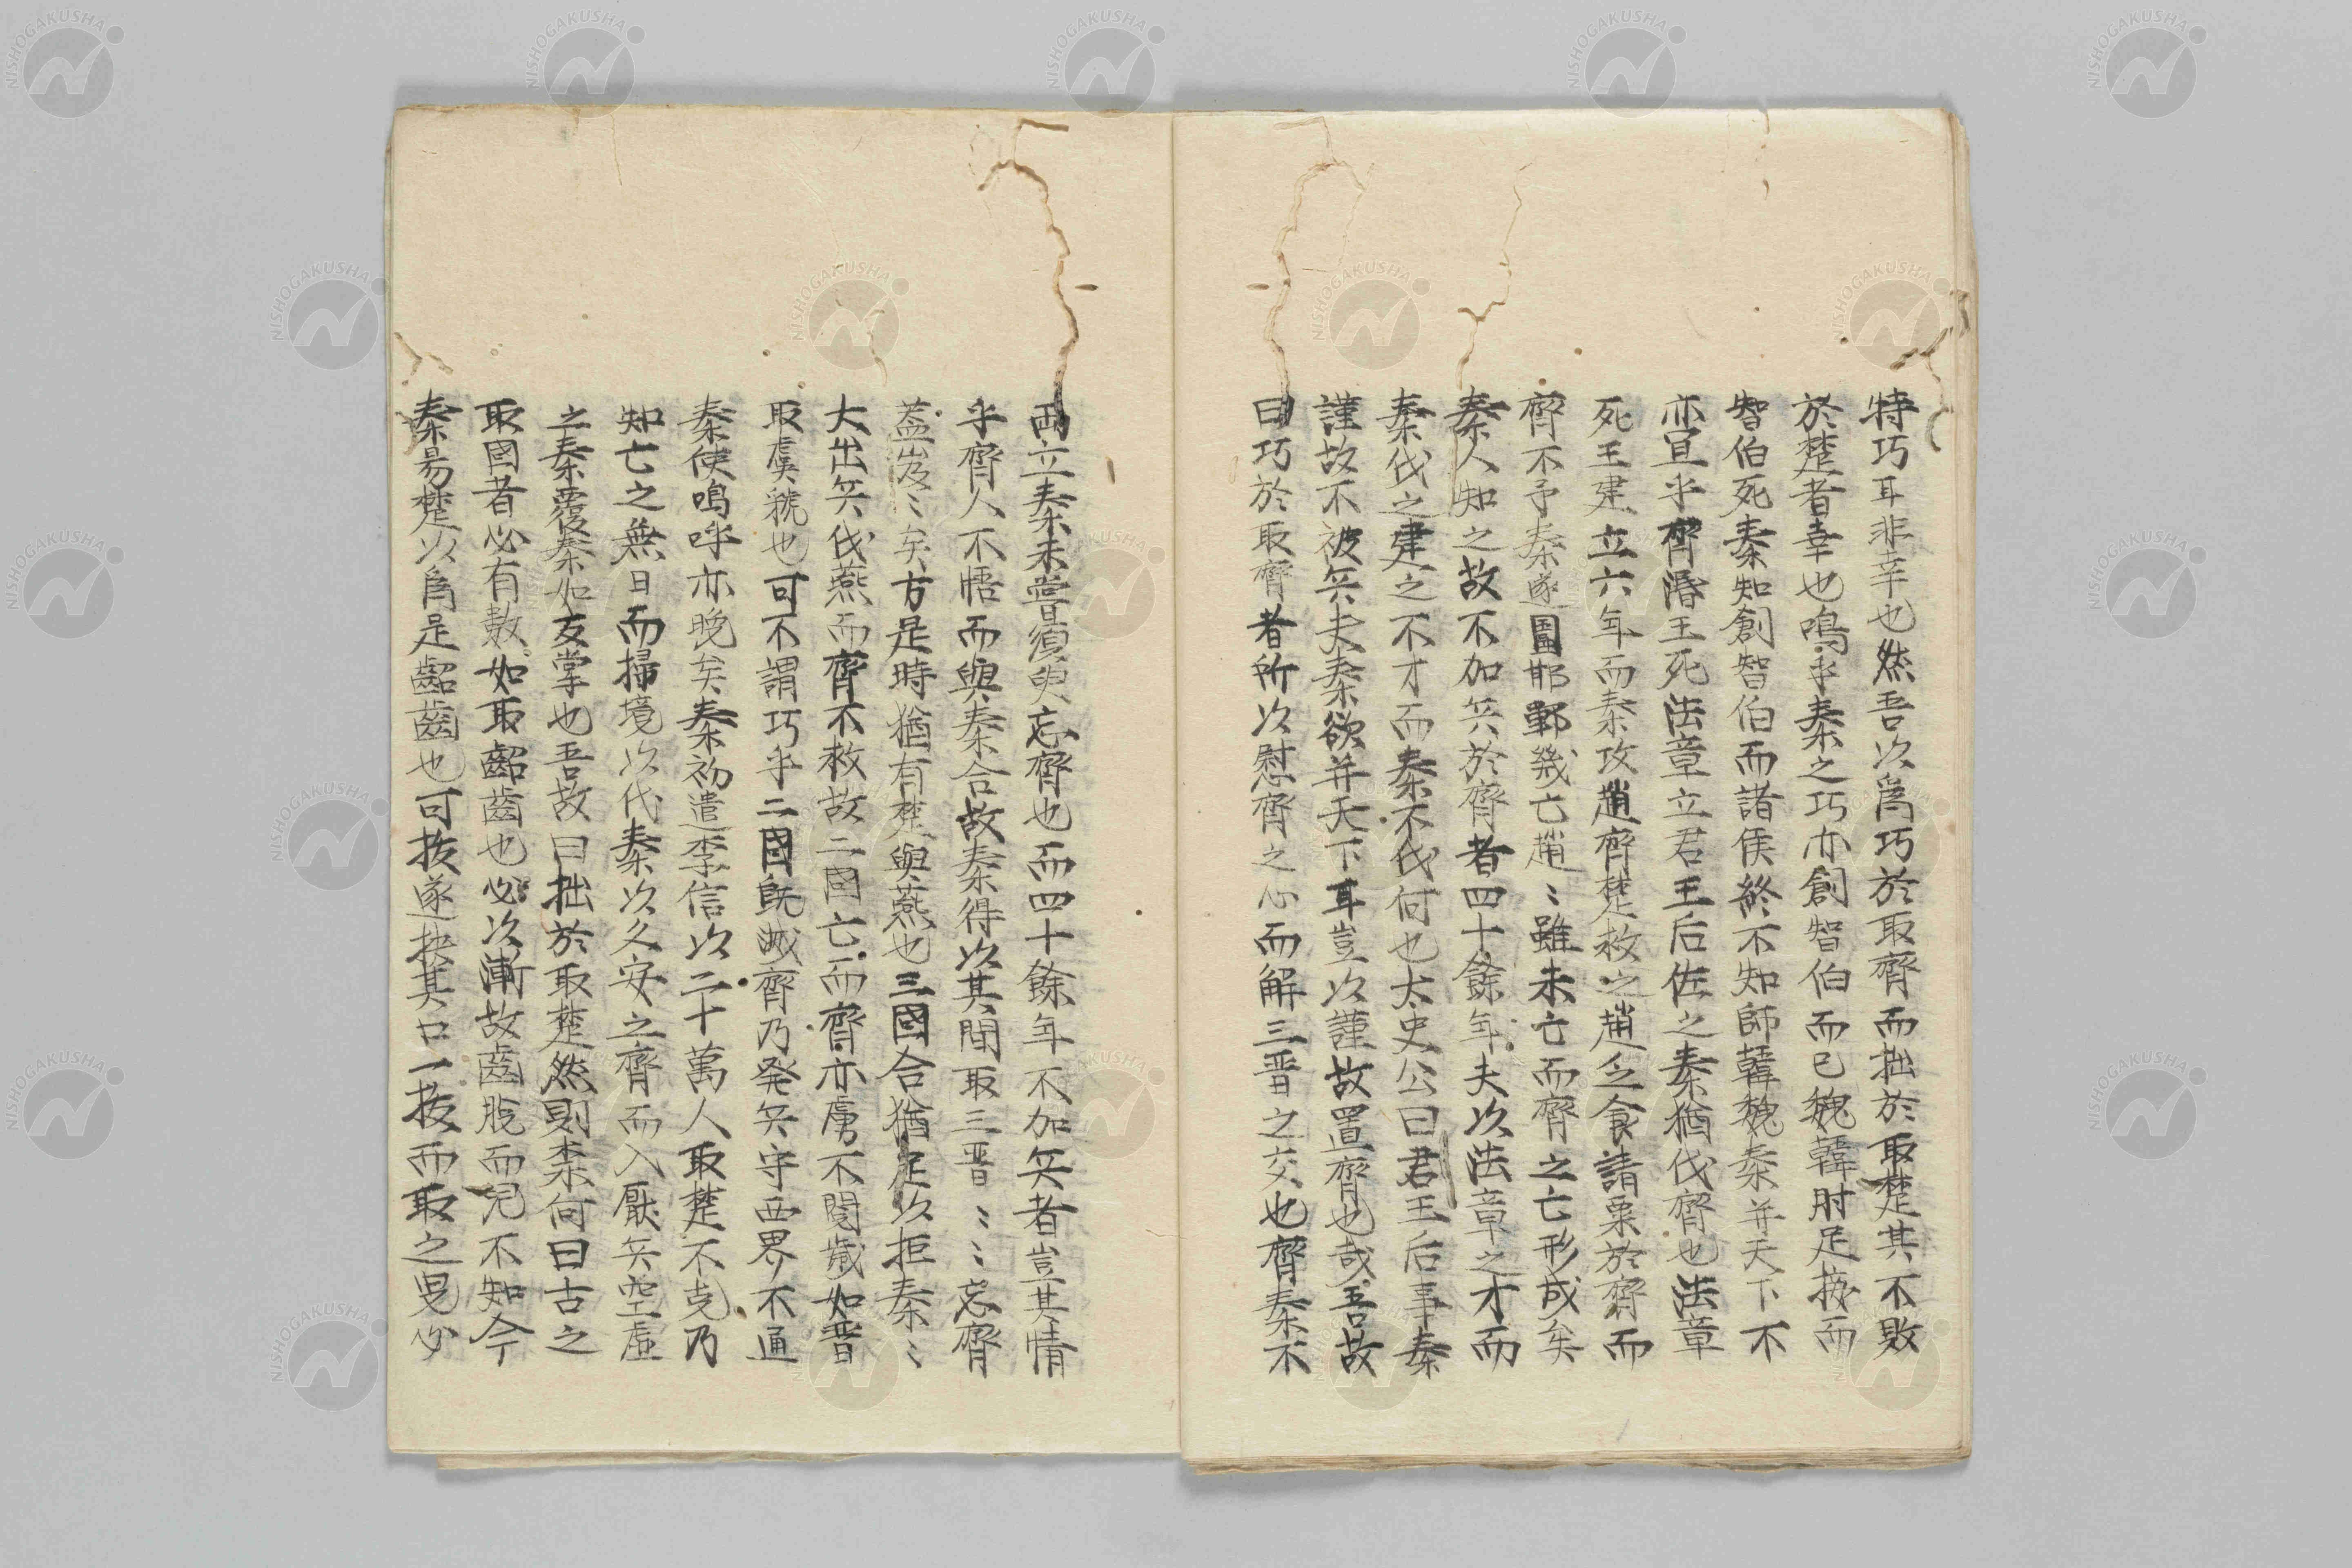 特巧耳非幸也然吾以爲巧於取齊而拙於取楚其不敗
於楚者幸也嗚乎秦之巧亦創智伯而已魏韓肘足接而
智伯死秦知創智伯而諸侯終不知師韓魏秦并天下不
亦宜乎齊湣王死法章立君王后佐之秦猶伐齊也法章
死王建立六年而秦攻趙齊楚救之趙乏食請粟於齊而
齊不予秦遂圍邯鄲幾亡趙〻雖未亡而齊之亡形成矣
秦人知之故不加兵於齊者四十餘年夫以法章之才而
秦伐之建之不才而秦不伐何也太史公曰君王后事秦
謹故不被兵夫秦欲并天下耳豈以謹故置齊也哉吾故
曰巧於取齊者所以慰齊之心而解三晋之交也齊秦不
両立秦未嘗須臾忘齊也而四十餘年不加兵者豈其情
乎齊人不悟而與秦合故秦得以其間取三晋〻〻忘齊
葢岌〻矣方是時猶有楚與燕也三國合猶足以拒秦〻
大出兵伐燕而齊不救故二國亡而齊亦虜不閱歳如晋
取虞虢也可不謂巧乎二國既滅齊乃発兵守西界不通
秦使嗚呼亦晩矣秦初遣李信以二十萬人取楚不克乃
知亡之無日而掃境以伐秦以久安之齊而入厭兵空虚
之秦覆秦如友掌也吾故曰拙於取楚然則柰何曰古之
取國者必有数如取齠齒也必以漸故齒脱而兒不知今
秦易楚以爲是齠齒也可抜遂抉其口一抜而取之児必